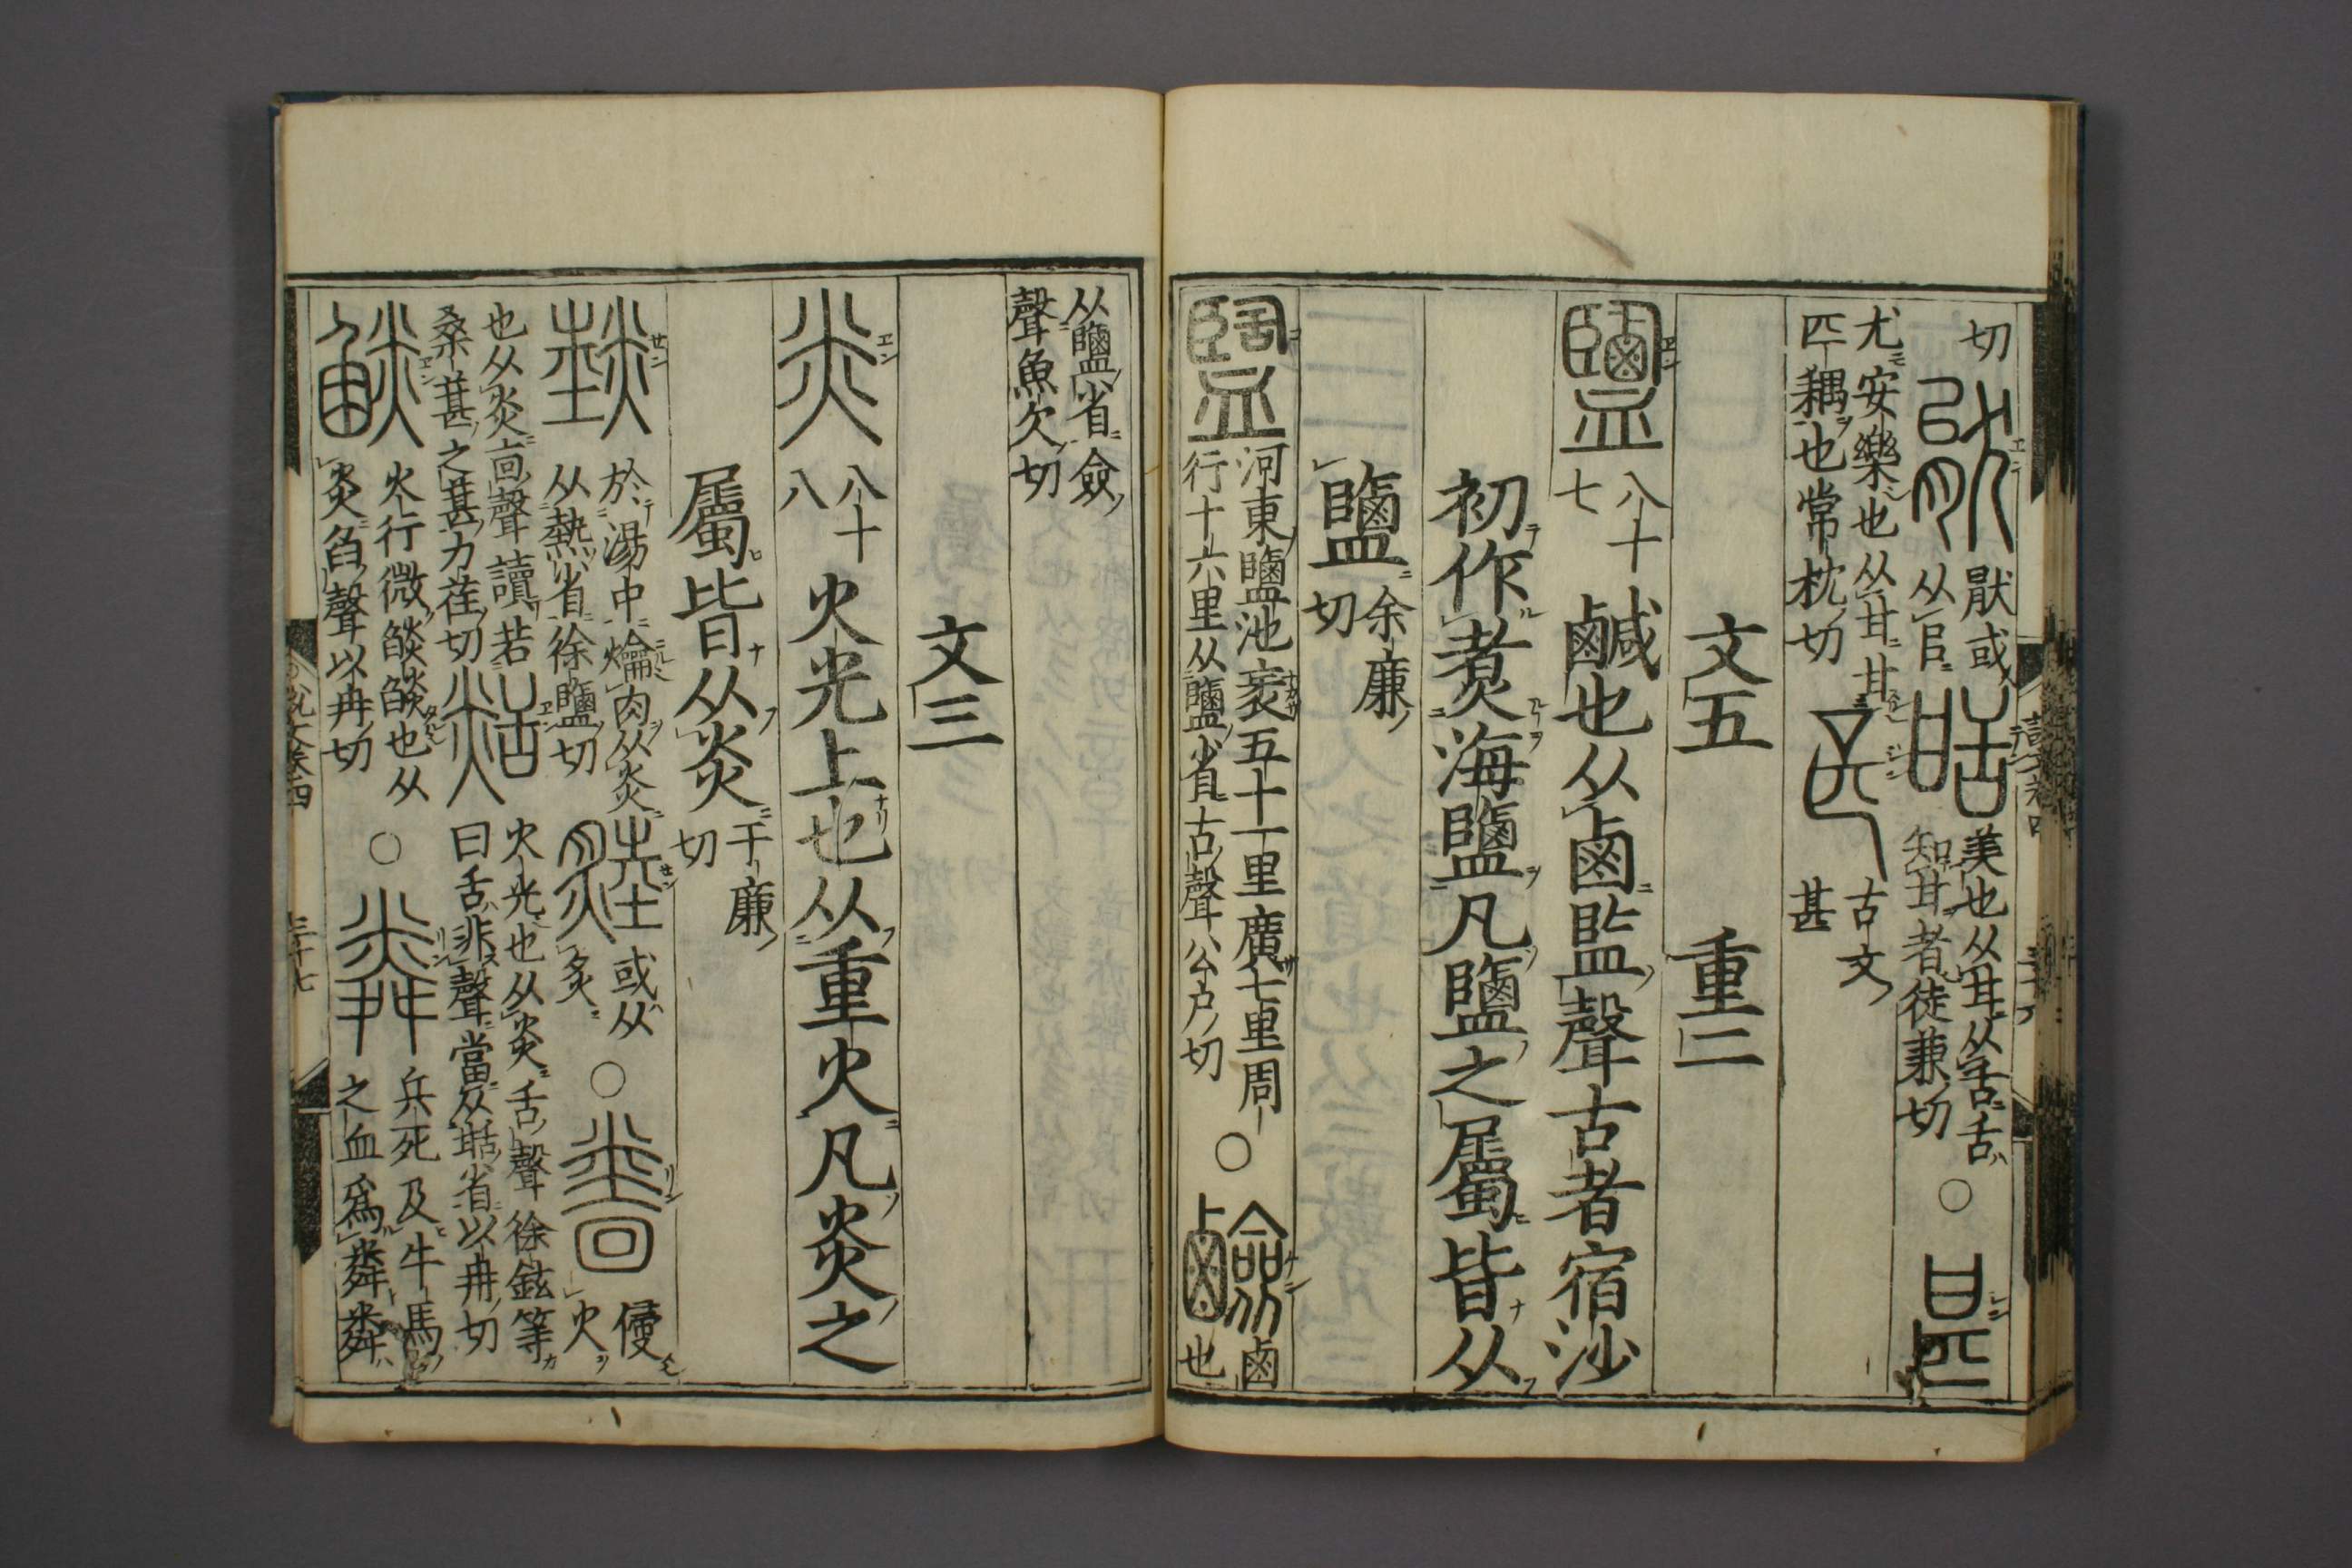 切𤯌猒或
从㠯甛美也从甘从舌舌
知甘者徒兼切○甚
尤安樂也从甘甘
匹耦也常枕切
古文
甚
文五 重二
鹽八十
七鹹也从鹵監聲古者宿沙
初作煑海鹽凡鹽之屬皆从
鹽余廉
切
盬河東鹽池袤五十一里廣七里周
行十六里从鹽省古聲公戶切○鹼鹵
也
从鹽省僉
聲魚欠切
文三
炎八十
八火光上也从重火凡炎之
屬皆从炎于廉
切
燅於湯中爚肉从炎
从熱省徐鹽切
或从
炙○侵
火
也从炎㐭聲讀若
桑葚之葚力荏切
火光也从炎舌聲徐鉉等
曰舌非聲當从甛省以冉切
燄火行微燄燄也从
炎臽聲以冉切○粦兵死及牛馬
之血爲粦粦
説文卷四 三十七